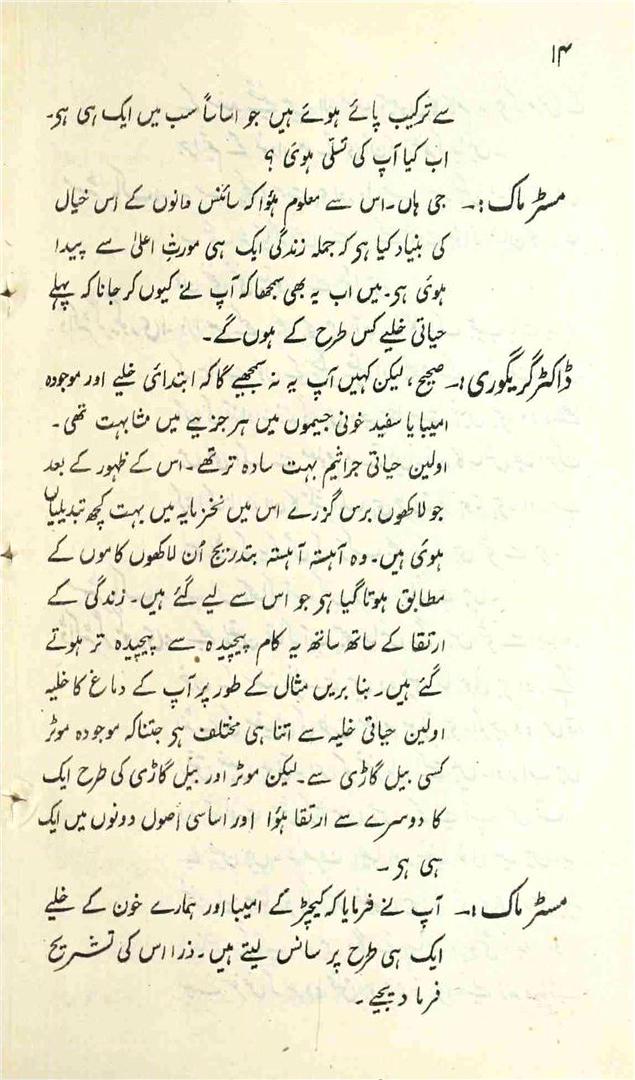 ۱۴
سے ترکیب پائے ہوئے ہیں جو اساساً سب میں ایک ہی ہی۔
اب کیا آپ کی تسلّی ہوئی ؟
مسٹر ماک :۔ جی ہاں۔ اس سے معلوم ہؤا کہ سائنس دانوں کے اس خیال
کی بنیاد کیا ہی کہ جملہ زندگی ایک ہی مورثِ اعلیٰ سے پیدا
ہوئی ہی۔ میں اب یہ بھی سمجھا کہ آپ نے کیوں کر جانا کہ پہلے
حیاتی خلیے کس طرح کے ہوں گے۔
ڈاکٹر گریگوری :۔ صحیح ، لیکن کہیں آپ یہ نہ سمجھیے گا کہ ابتدائی خلیے اور موجودہ
امیبا یا سفید خونی جسیموں میں ہر جزیے میں مشابہت تھی۔
اولین حیاتی جراثیم بہت سادہ تر تھے۔ اس کے ظہور کے بعد
جو لاکھوں برس گزرے اس میں نخزمایہ میں بہت کچھ تبدیلیاں
ہوئی ہیں۔ وہ آہستہ آہستہ بتدریج اُن لاکھوں کاموں کے
مطابق ہوتا گیا ہی جو اس سے لیے گئے ہیں۔ زندگی کے
ارتقا کے ساتھ ساتھ یہ کام پیچیدہ سے پیچیدہ تر ہوتے
گئے ہیں۔ بنا بریں مثال کے طور پر آپ کے دماغ کا خلیہ
اولین حیاتی خلیہ سے اتنا ہی مختلف ہی جتنا کہ موجودہ موٹر
کسی بیل گاڑی سے۔ لیکن موٹر اور بیل گاڑی کی طرح ایک
کا دوسرے سے ارتقا ہؤا اور اساسی اُصول دونوں میں ایک
ہی ہی ۔
مسٹر ماک :۔ آپ نے فرمایا کہ کیچڑ کے امیبا اور ہمارے خون کے خلیے
ایک ہی طرح پر سانس لیتے ہیں۔ ذرا اس کی تشریح
فرما دیجیے ۔